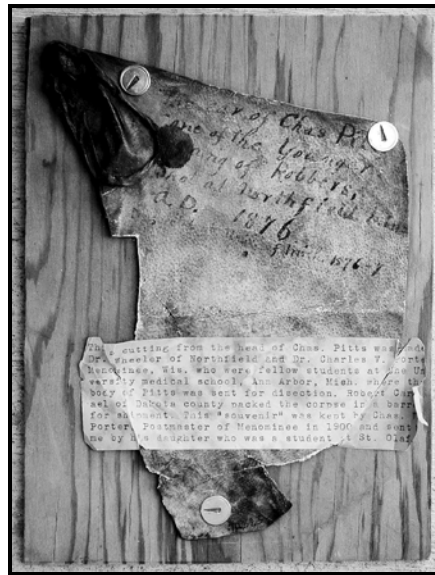 of Chas Pit
one of the Younger
gang of Robbers,
shot at Northfield Min
A.D. 1876
1876-7
This cutting from the head of Chas. Pitts was made
Dr. Wheeler of Northfield and Dr. Charles V. Porte
Menominee, Wis. who were fellow students at the Un
versity medical school, Ann Arbor, Mich. where th
body of Pitts was sent for disection. Robert Car
ael of Dakota county packed the corpse in a barr
for shipment. This "souvenir" was kept by Chas.
Porter, Postmaster of Menominee in 1900 and sent
me by his daughter who was a student at St. Olaf